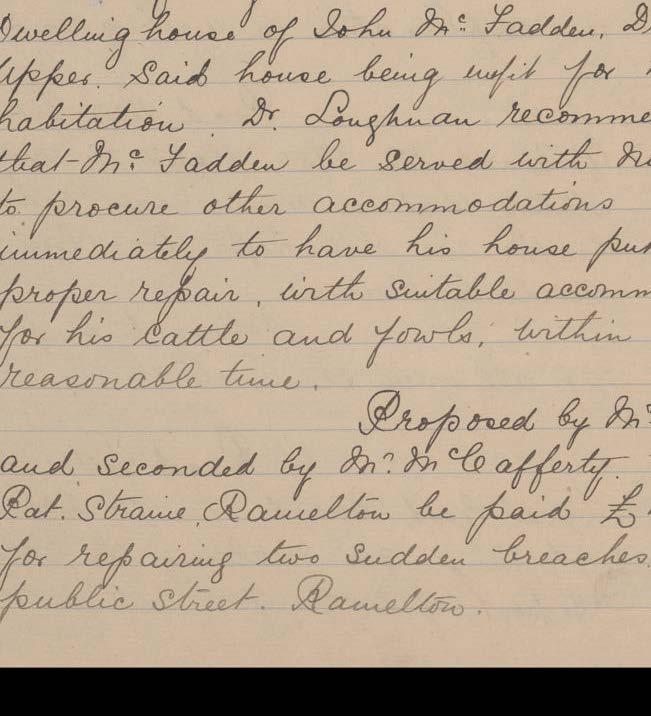 Dwelling house of John McFadden, D
Upper. Said house being unfit for
habitation. Dr. Loughnan recomme
that McFadden be served with
to procure other accommodations
immediately to have his house pu
proper repair, with suitable accomm
for his cattle and fowls, within
reasonable time.
Proposed by Mr
and seconded by Mr. McCafferty.
Pat. Straine, Ramelton be paid £
for repairing two sudden breaches
public street. Ramelton.